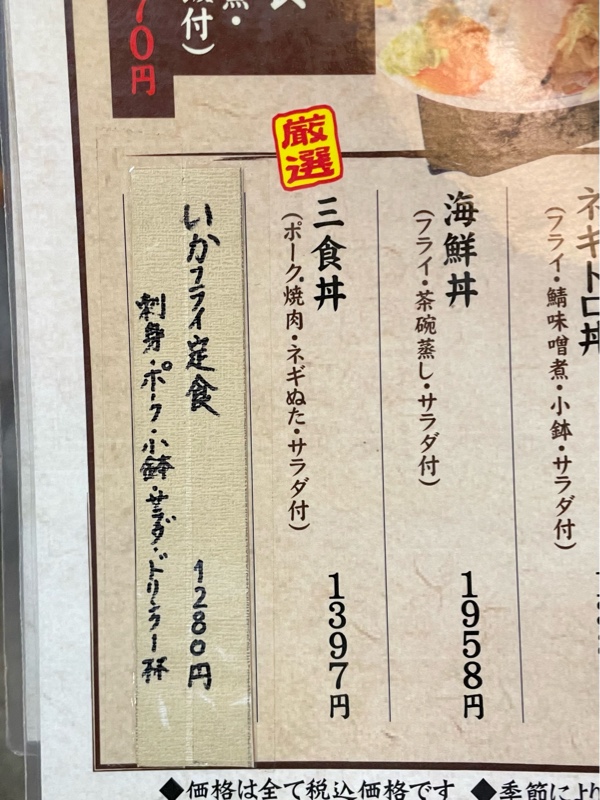 70円
付)
厳選
ネギトロ丼
(フライ・鯖味噌煮・小鉢・サラダ付)
海鮮丼
(フライ・茶碗蒸し・サラダ付)
1958円
三食丼
(ポーク焼肉・ネギぬた・サラダ付)
1397円
いかフライ定食
刺身・ポーク・小鉢・サラダ・ドリンク一杯
1280円
◆価格は全て税込価格です ◆季節により